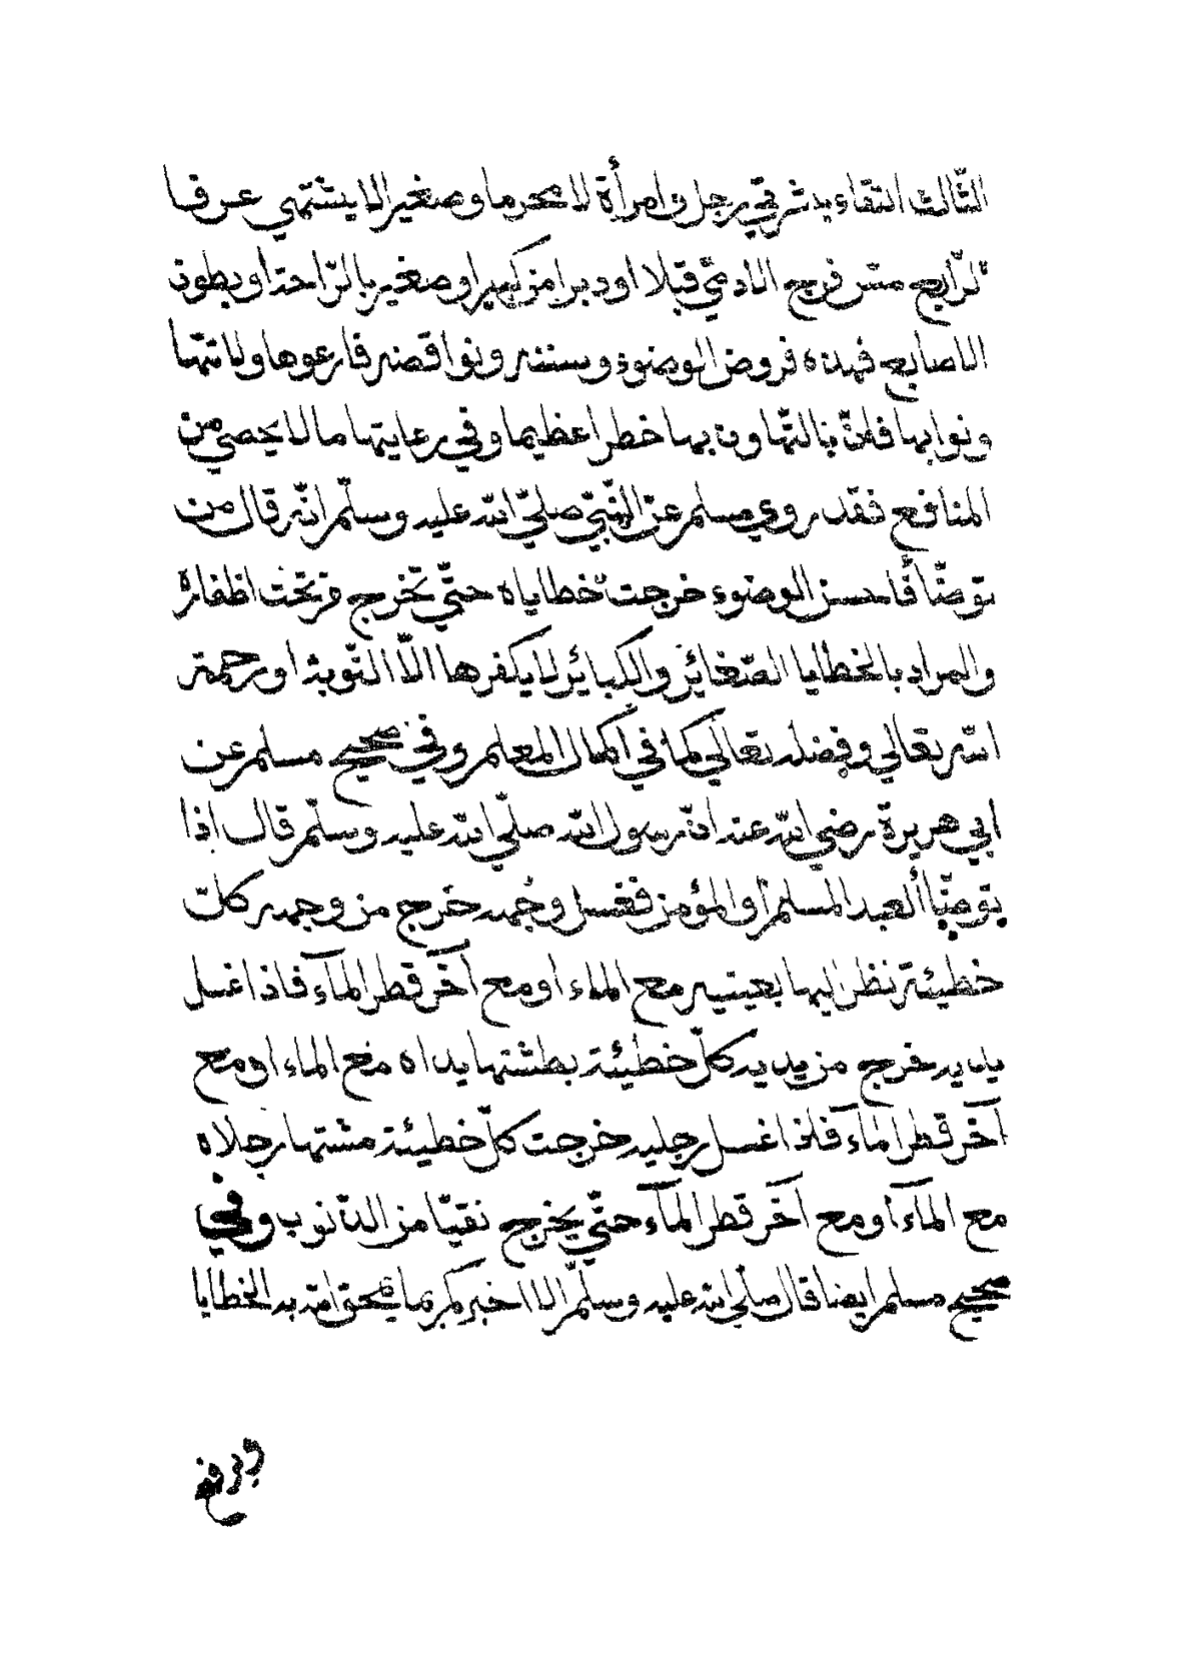 الثّالث التقاء بشرتي رجل وامرأة لا محرما وصغيرا لا يشتهي عرفا
الرّابع مسّ فرج الادميّ قبلا او دبرا من كبير او صغير بالرّاحة او بطون
الاصابع فهذه فروض الوضوء وسننه ونواقضه فارعوها ولا تتها
ونوا بها فانّ بالتّهاون بها خطرا عظيما وفي رعايتها ما لا يحصي من
المنافع فقد روي مسلم عن النّبيّ صلّي الله عليه وسلّم انّه قال من
توضّأ فاحسن الوضوء خرجت خطاياه حتّي تخرج من تحت اظفاره
والمراد بالخطايا الصّغائر والكبائر لا يكفرها الاّ التّوبة او رحمة
الله تعالي وفضله تعالي كما في اكمال المعلم وفي صحيح مسلم عن
ابي هريرة رضي الله عنه انّ رسول الله صلّي الله عليه وسلّم قال اذا
توضّأ العبد المسلم أو المؤمن فغسل وجهه خرج من وجهه كلّ
خطيئة نظر اليها بعينيه مع الماء او مع آخر قطر المآء فاذا غسل
يديه خرج من يديه كلّ خطيئة بطشتها يداه مع الماء او مع
آخر قطر المآء فاذا غسل رجليه خرجت كلّ خطيئة مشتها رجلاه
مع المآء او مع آخر قطر المآء حتّي يخرج نقيّا من الذّنوب وفي
صحيح مسلم ايضا قال صلّي الله عليه وسلّم الا اخبركم بما يمحق الله به الخطايا